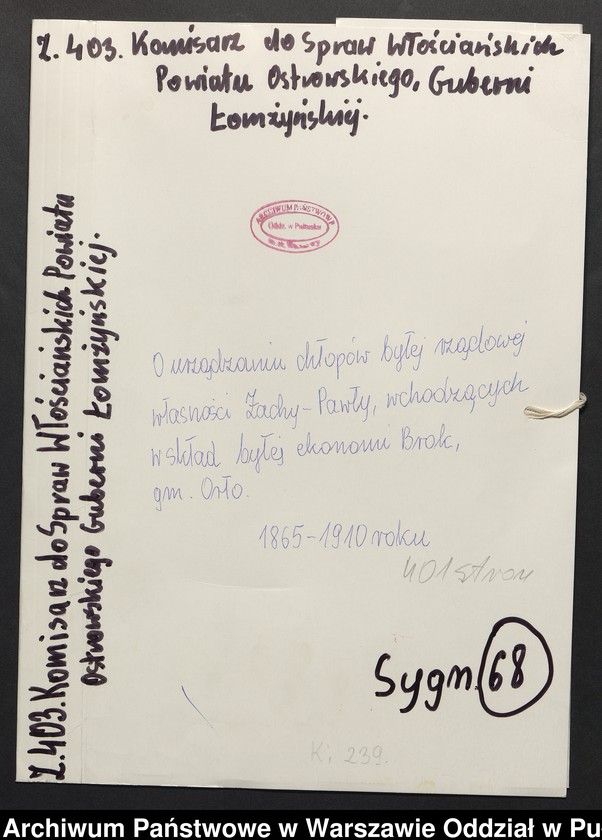 Z. 403. Komisarz do Spraw Włościańskich
Powiatu Ostrowskiego, Guberni
Łomżyńskiej.
Z. 403. Komisarz do Spraw Włościańskich Powiatu
Ostrowskiego Guberni Łomżyńskiej.
ARCHIWUM PAŃSTWOWE
Oddz. w Pułtusku
O urządzaniu chłopów byłej rządowej
własności Żachy-Pawły, wchodzących
w skład byłej ekonomi Brok,
gm. Orło.
1865-1910 roku
401 stron
Sygn. 68
K; 239.
Archiwum Państwowe w Warszawie Oddział w Pu